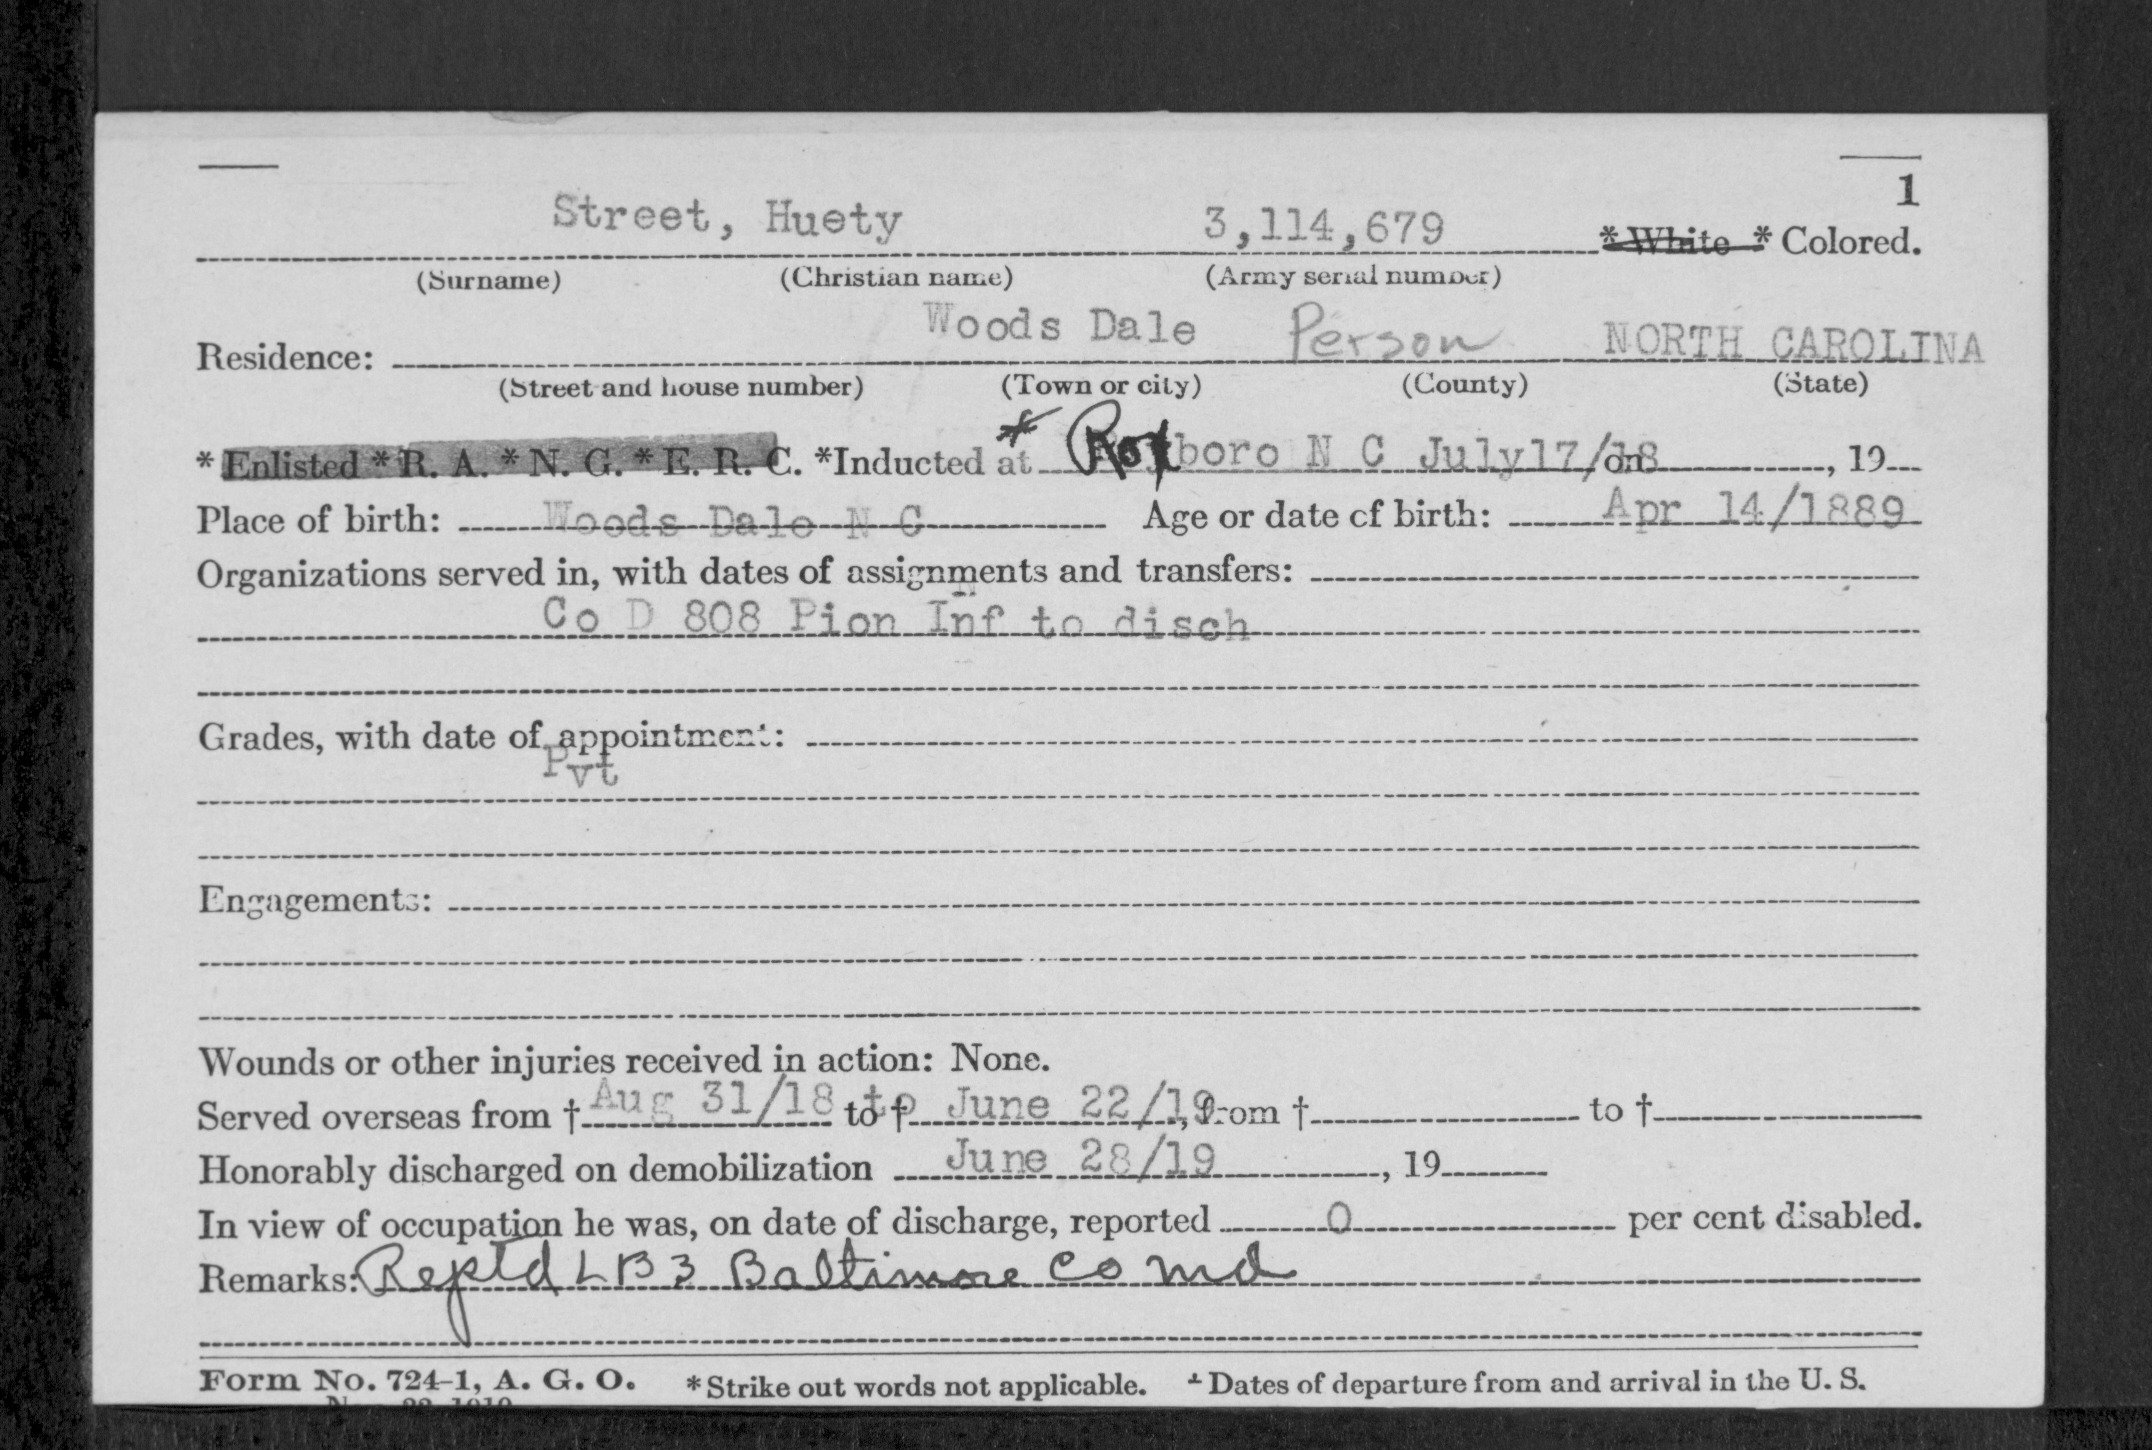 1
Street, Huety 3,114,679 * White * Colored.
(Surname) (Christian name) (Army serial number)
Residence: Woods Dale Person NORTH CAROLINA
(Street and house number) (Town or city) (County) (State)
* Enlisted * R. A. * N. G. * E. R. C. *Inducted at * Roxboro N C July17/18 on , 19
Place of birth: Woods Dale N C Age or date of birth: Apr 14/1889
Organizations served in, with dates of assignments and transfers:
Co D 808 Pion Inf to disch
Grades, with date of appointment:
Pvt
Engagements:
Wounds or other injuries received in action: None.
Served overseas from † Aug 31/18 to † to June 22/19, from † to †
Honorably discharged on demobilization June 28/19 , 19
In view of occupation he was, on date of discharge, reported 0 per cent disabled.
Remarks: Reptd LB3 Baltimore Co Md
Form No. 724-1, A. G. O. *Strike out words not applicable. † Dates of departure from and arrival in the U. S.